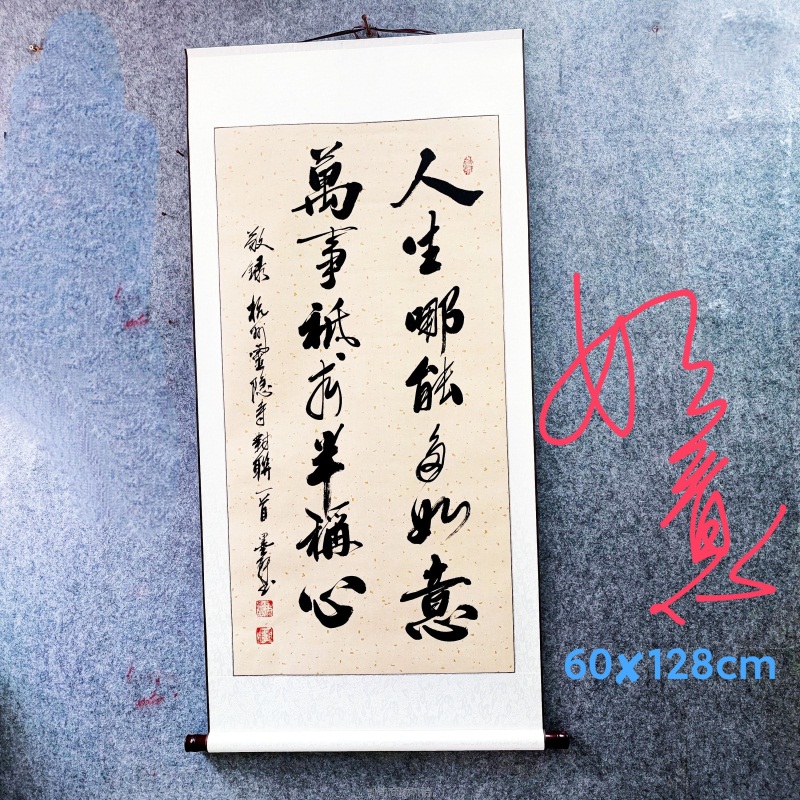 人生哪能多如意
萬事祗求半稱心
敬録杭州靈隐寺對聯一首
如意
60x128cm